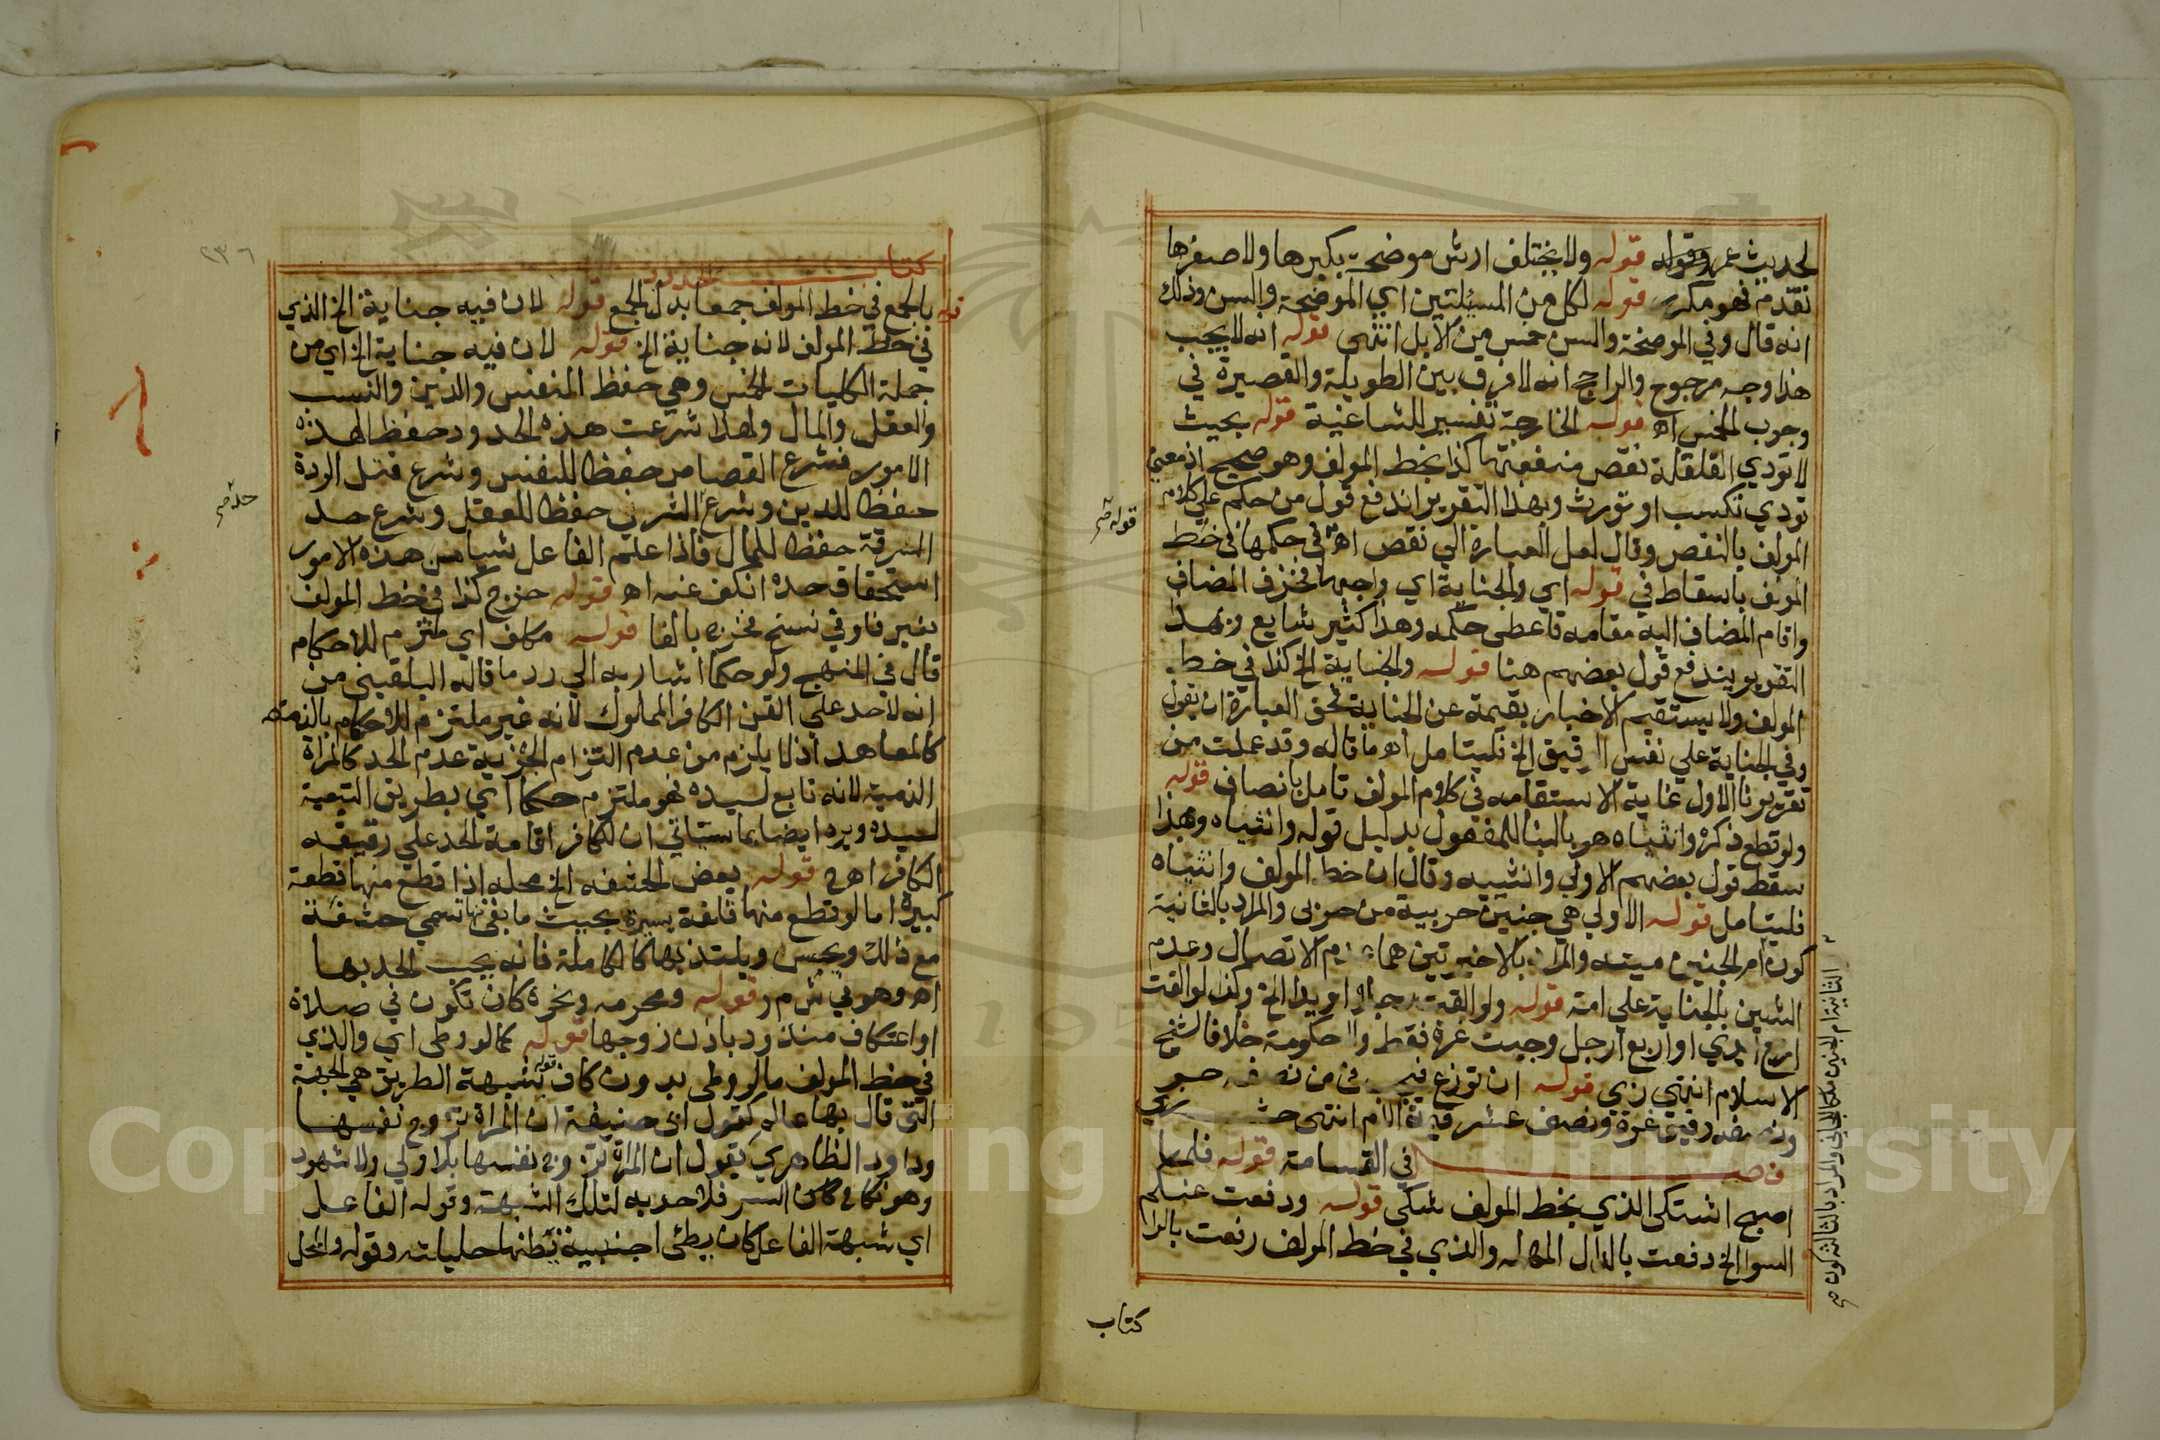 لحديث عمر وقوله قوله ولا يختلف ارش موضحة بكبرها ولا صغرها
تقدم فهو مكرر قوله لكل من المسئلتين اي الموضحة والسن وذلك
انه قال وفي الموضحة والسن خمس من الابل انتهى قوله انه لا يجب
هذا وجه مرجوح والراجح انه لا فرق بين الطويلة والقصيرة في
وجوب الخمس اه قوله الخارجة تفسير للشاغية قوله بحيث
لا تودي القلقلة نقص منفعتها كذا بخط المولف وهو صحيح اذ معنى
تودي تكسب او تورث وبهذا التقرير اندفع قول من حكم على كلام
المولف بالنقص وقال لعل العبارة الى نقص اه في حكمها في خط
قوله صح
المولف باسقاط في قوله اي والجناية اي واجبها فحذف المضاف
واقام المضاف اليه مقامه فاعطى حكمه وهذا كثير شايع وبهذا
التقرير يندفع قول بعضهم هنا قوله والجناية الخ كذا في خط
المولف ولا يستقيم الاخبار بقيمة عن الجناية فحق العبارة ان يقول
وفي الجناية على نفس الرقيق الخ فليتامل اه ما قاله وقد عملت من
تقريرنا الاول غاية الاستقامه في كلام المولف تامل بانصاف قوله
ولو قطع ذكره وانثياه هو بالبنا للمفعول بدليل قوله وانثياه وبهذا
سقط قول بعضهم الاولى وانثييه وقال ان خط المولف وانثياه
فليتامل قوله الاولى هي جنين حربية من حربى والمراد بالثانية
كون ام الجنين ميتة والمراد بالاخيرتين هما عدم الاتصال وعدم
الشين بالجناية على امة قوله ولو القت يدا او يدا الخ وكذا لو القت
اربع ايدي او اربع ارجل وجبت غرة فقط ولا حكومة خلافا لشيخ
الاسلام انتهى زي قوله ان توزع
ونصفه رقيق غرة ونصف عشر قيمة الام انتهى
فصل في القسامة قوله فلما
اصبح اشتكى الذي بخط المولف شكى قوله ودفعت عنكم
السوا الخ دفعت بالدال المهمله والذي في خط المولف رفعت بالرا
كتاب
٢٣٦
كتاب الحدود
قوله بالجمع في خط المولف جمعا بدل الجمع قوله لان فيه جناية الخ الذي
في خط المولف لانه جناية الخ قوله لان فيه جناية الخ اي من
جملة الكليات الخمس وهي حفظ النفس والدين والنسب
والعقل والمال ولهذا شرعت هذه الحدود حفظا لهذه
الامور فشرع القصاص حفظا للنفس وشرع قتل الردة
حفظا للدين وشرع الشرب حفظا للعقل وشرع حد
حد صح
السرقة حفظا للمال فاذا علم الفاعل شيا من هذه الامور
استحقاق حده انكف عنه اه قوله خرج كذا في خط المولف
بغير فا وفي نسخ فخرج بالفا قوله مكلف اي ملتزم للاحكام
قال في المنهج ولو حكما اشار به الى رد ما قاله البلقيني من
انه لا حد على القن الكافر المملوك لانه غير ملتزم للاحكام بالذمة
كالمعاهد اذ لا يلزم من عدم التزام الجزية عدم الحد كالمراة
الذمية لانه تابع لسيده فهو ملتزم حكما اي بطريق التبعية
لسيده ويرد ايضا بما سياتي ان للكافر اقامة الحد على رقيقه
الكافر اه قوله بعض الحشفه الخ محله اذا قطع منها قطعة
كبيرة اما لو قطع منها فلقة يسيرة بحيث ما بقي منها تسمى حشفة
مع ذلك ويحس ويلتذ بها كالكاملة فانه يجب الحد بها
اه وهو في شرح م ر قوله ومحرمه ونحوه كان تكون في صلاة
او اعتكاف منذور باذن زوجها قوله كما لو وطى اي والذي
في خط المولف مالو وطى بدون كاف قوله بشبهة الطريق هي الجهة
التي قال بها عالم كقول ابى حنيفة ان المراة تزوج نفسها
وداود الظاهري يقول ان المراة تزوج نفسها بلا ولي ولا شهود
وهو نكاح السر فلا حد به لتلك الشبهة وقوله الفاعل
اي شبهة الفاعل كان يطئ اجنبية يظنها حليلته وقوله والمحل